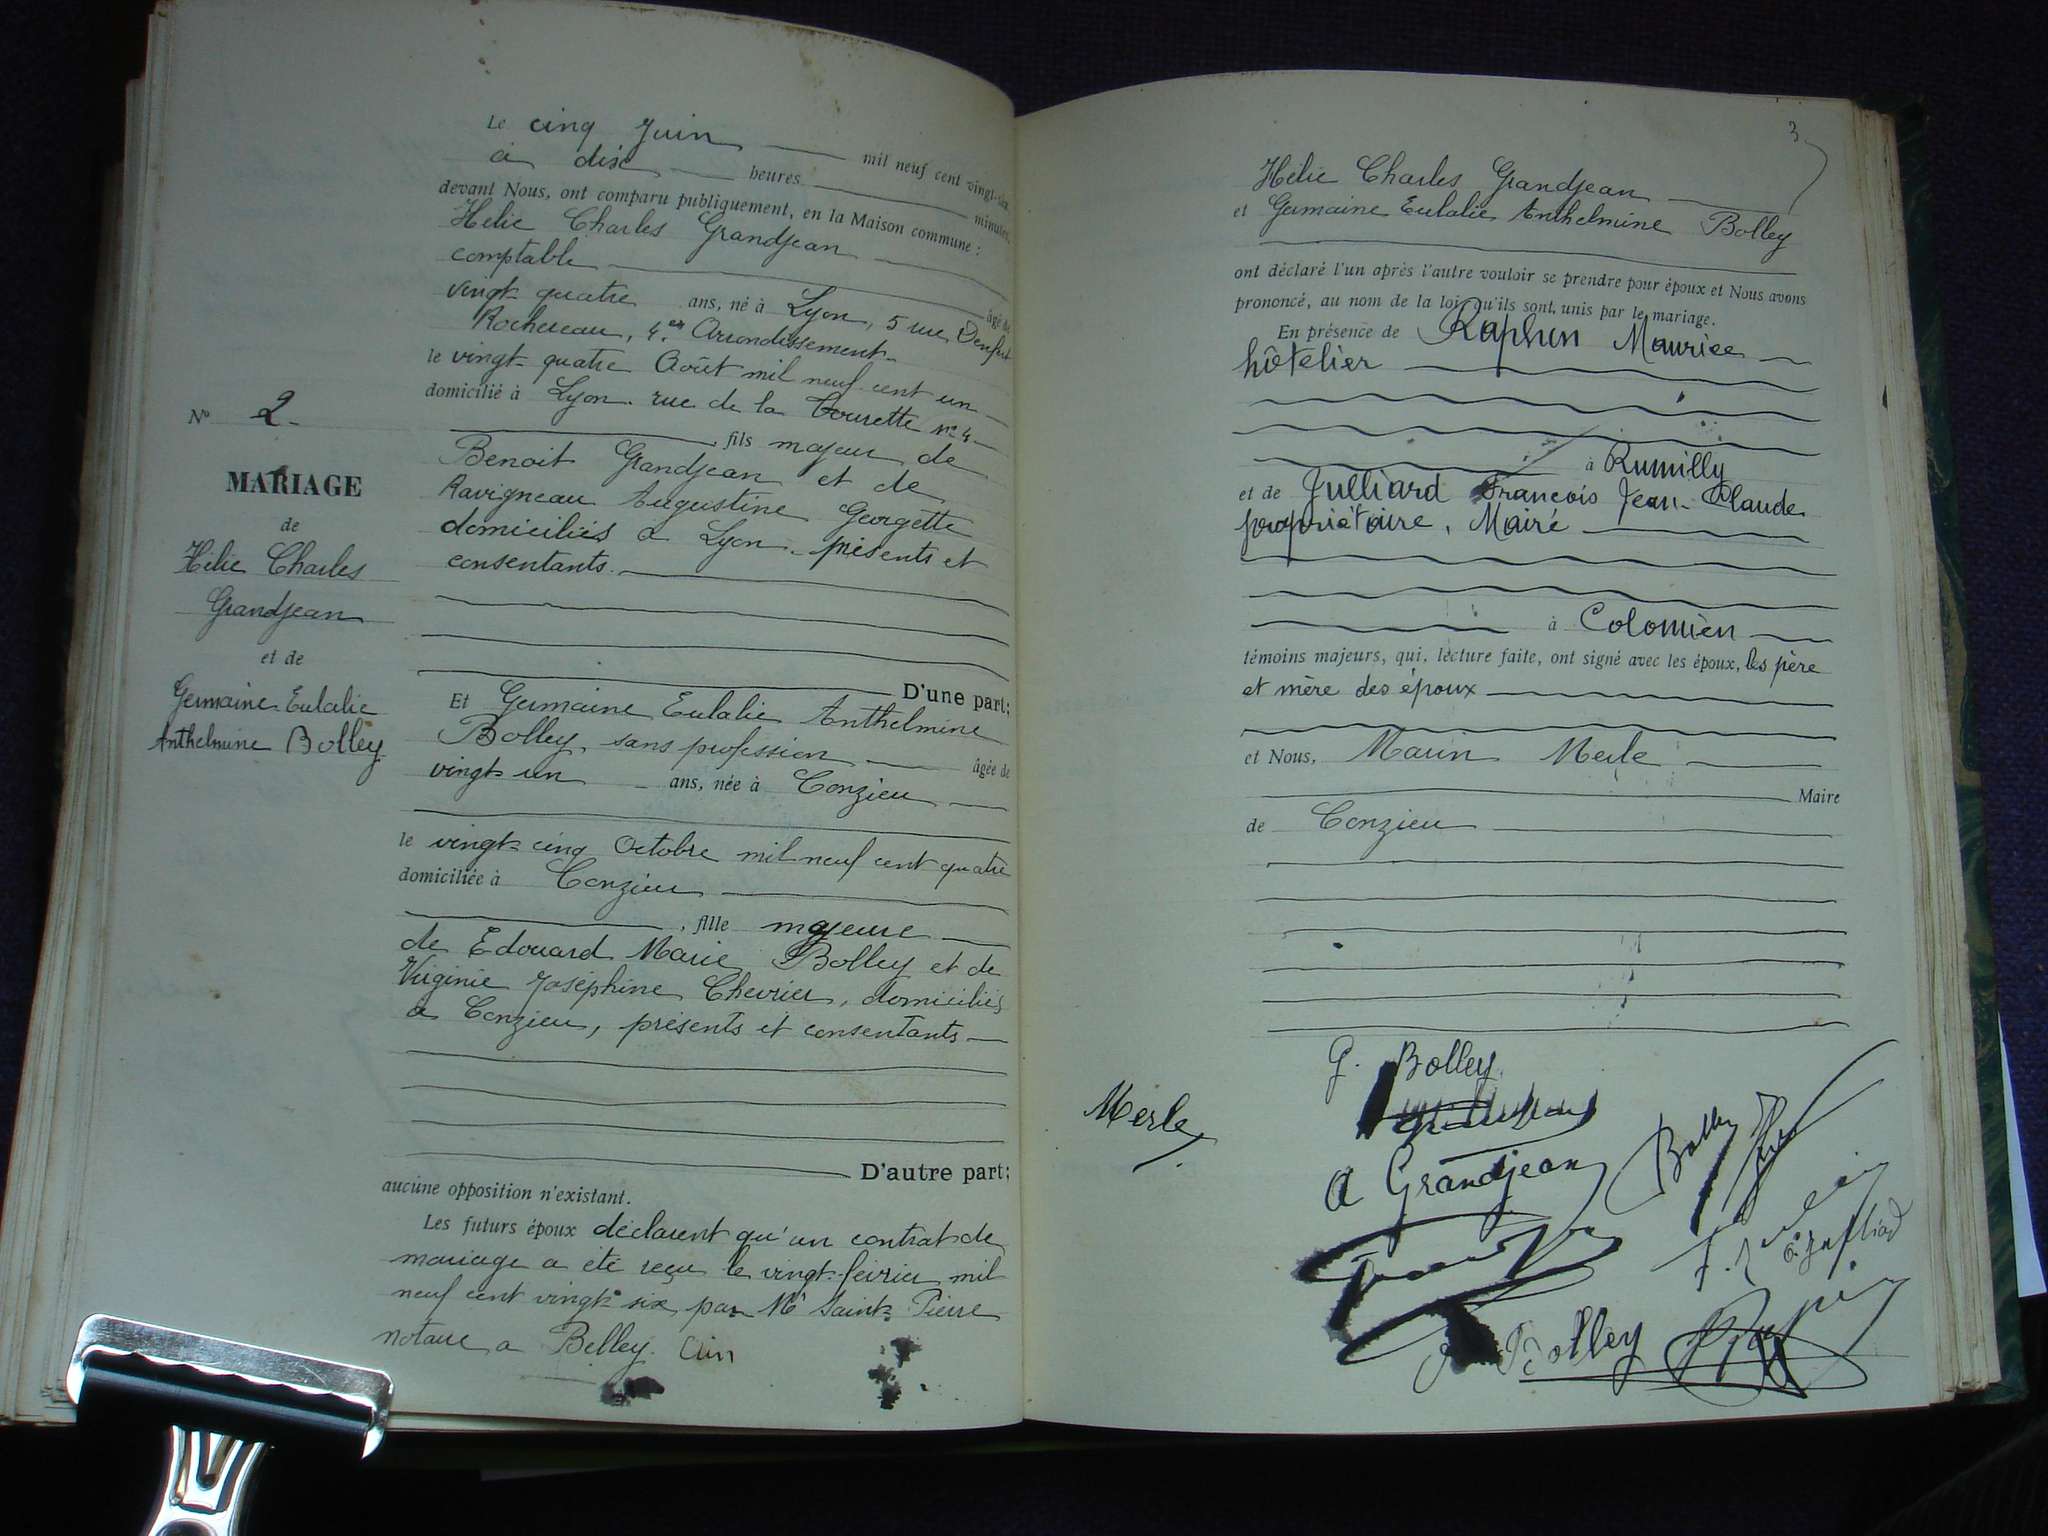 Le cinq Juin mil neuf cent vingt-six
à dix heures minutes,
devant Nous, ont comparu publiquement, en la Maison commune :
Hélie Charles Grandjean
comptable âgé de
vingt quatre ans, né à Lyon, 5 rue Denfert
Rochereau, 4e Arrondissement
le vingt-quatre Août mil neuf cent un
domicilié à Lyon. rue de la Tourette n° 4
, fils majeur de
Benoit Grandjean et de
Ravigneau Augustine Georgette
domiciliés à Lyon, présents et
consentants.
D'une part;
Et Germaine Eulalie Anthelmine
Bolley, sans profession âgée de
vingt-un ans, née à Conzieu
le vingt-cinq Octobre mil neuf cent quatre
domiciliée à Conzieu
, fille majeure
de Edouard Marie Bolley et de
Virginie Joséphine Chevrier, domiciliés
à Conzieu, présents et consentants
D'autre part;
aucune opposition n'existant.
Les futurs époux déclarent qu'un contrat de
mariage a été reçu le vingt février mil
neuf cent vingt-six par Me Saint-Pierre
notaire à Belley. Ain
N° 2
MARIAGE
de
Hélie Charles
Grandjean
et de
Germaine Eulalie
Anthelmine Bolley
3
Hélie Charles Grandjean
et Germaine Eulalie Anthelmine Bolley
ont déclaré l'un après l'autre vouloir se prendre pour époux et Nous avons
prononcé, au nom de la loi, qu'ils sont unis par le mariage.
En présence de Maurice
hôtelier
à Rumilly
et de Julliard François Jean-Claude
propriétaire, Maire
à Colomieu
témoins majeurs, qui, lecture faite, ont signé avec les époux, les père
et mère des époux
et Nous, Marin Merle
Maire
de Conzieu
G. Bolley
Merle
A Grandjean
Bolley
Bolley